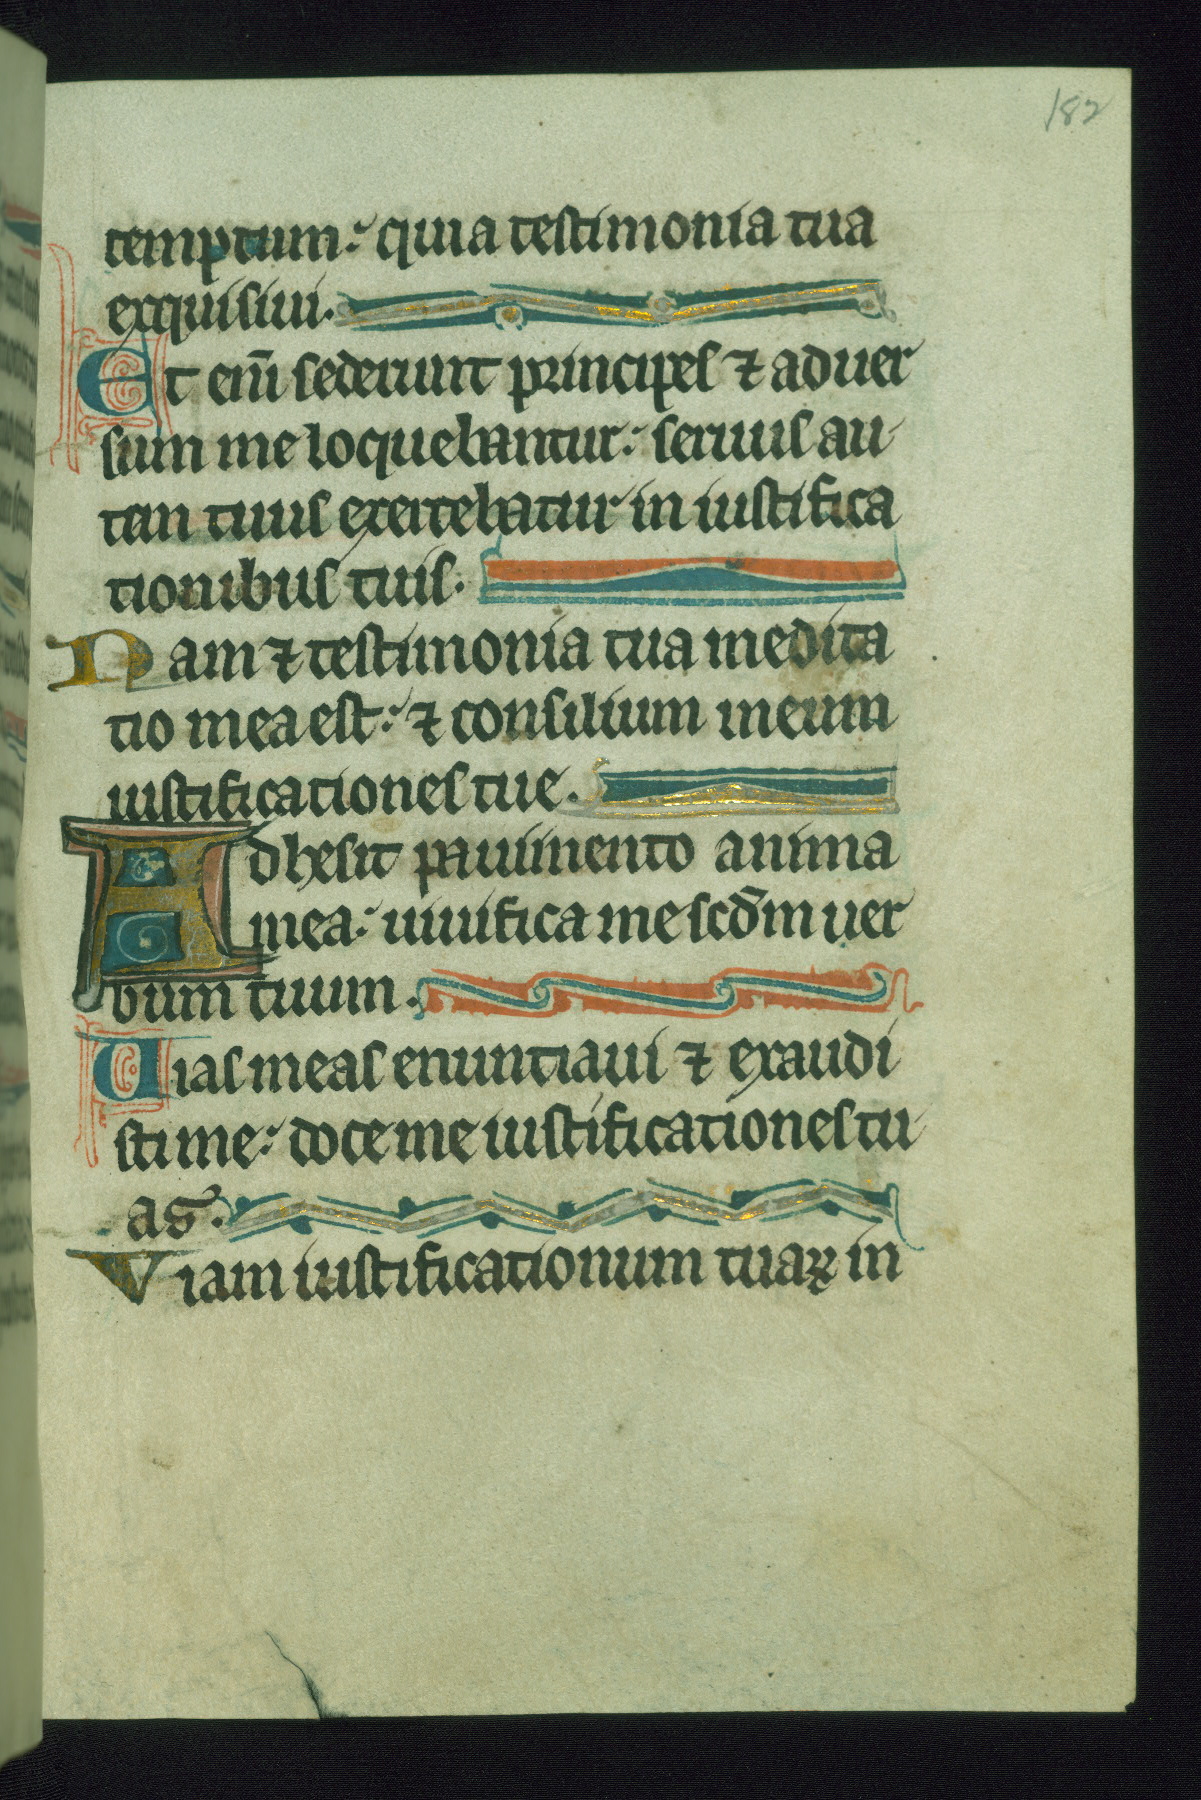 182
temptum: quia testimonia tua
exquisiui.
Et eni̅ sederunt principes ⁊ aduer
sum me loquebantur: seruus au
tem tuus exercebatur in iustifica
tionibus tuis.
Nam ⁊ testimonia tua medita
tio mea est: ⁊ consilium meum
iustificationes tue.
Adhesit pauimento anima
mea: uiuifica me scd̅m uer
bum tuum.
Uias meas enuntiaui ⁊ exaudi
sti me: doce me iustificationes tu
as.
Viam iustificationum tuaꝝ in